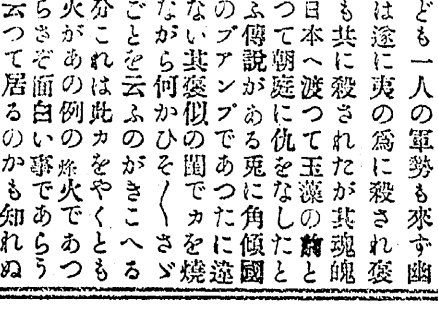 ども一人の軍勢も來ず幽
は遂に夷の爲に殺され褒
も共に殺されたが其魂魄
日本へ渡つて玉藻の前と
つて朝庭に仇をなしたと
ふ傳說がある兎に角傾國
のブアンプであつたに違
ない其褒似の閨でカを燒
ながら何かひそ〱さゞ
ごとを云ふのがきこへる
分これは此カをやくとも
火があの例の烽火であつ
らさぞ面白い事であらう
云つて居るのかも知れぬ